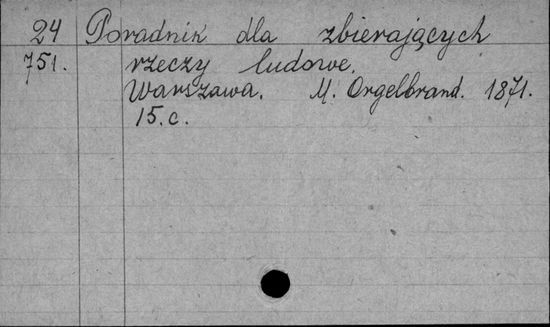 24 Poradnik dla zbierających
751. rzeczy ludowe.
Warszawa. M. Orgelbrand. 1871.
15.c.